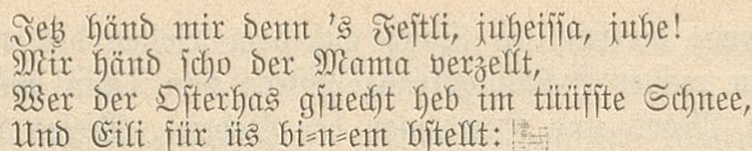 Jetz händ mir denn 's Festli, juheissa, juhe!
Mir händ scho der Mama verzellt,
Wer der Osterhas gsuecht heb im tüüfste Schnee,
Und Eili für üs bi-n-em bstellt: